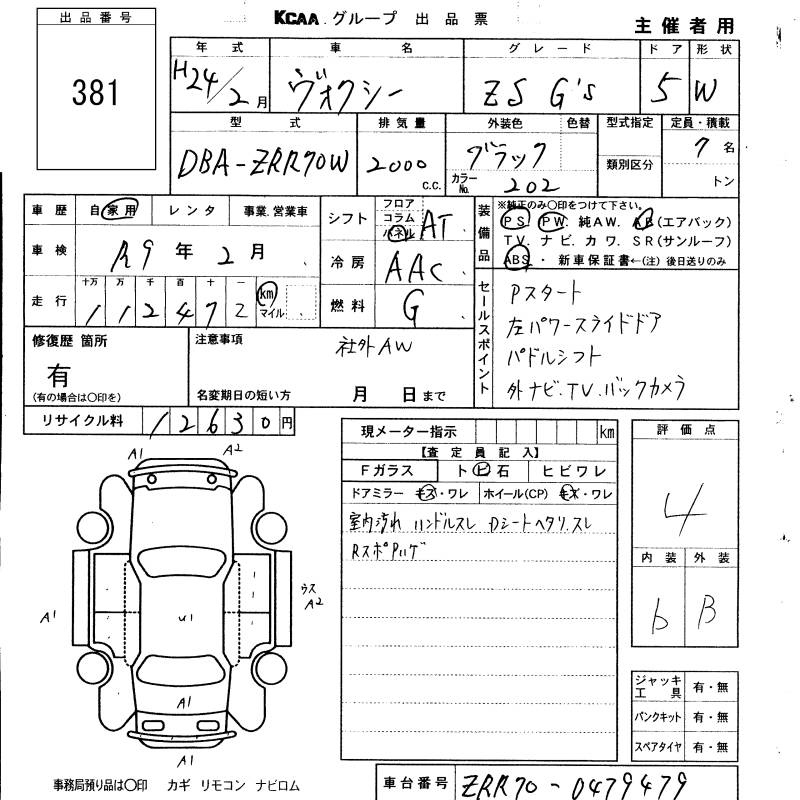 出品番号
KCAA グループ 出品票
主催者用
381
年式 車名 グレード ドア 形状
H24/2月 ヴォクシー ZS G's 5 W
型式 排気量 外装色 色替 型式指定 定員・積載
DBA-ZRR70W 2000 c.c. ブラック 7名
類別区分
カラーNo. 202 トン
車歴 自家用 レンタ 事業.営業車
シフト フロア コラム パネル AT
装備品
※純正のみ〇印をつけて下さい。
PS. PW. 純AW. AB(エアバック)
TV. ナビ. カワ. SR(サンルーフ)
ABS ・ 新車保証書←(注)後日送りのみ
車検 R9年2月
冷房 AAC
走行 十万 万 千 百 十 一
112472 km マイル
燃料 G
セールスポイント
Pスタート
左パワースライドドア
パドルシフト
外ナビ.TV.バックカメラ
修復歴 箇所
有
(有の場合は〇印を)
注意事項 社外AW
名変期日の短い方 月 日まで
リサイクル料 12630円
現メーター指示 km
【査定員記入】
Fガラス ト ビ 石 ヒビワレ
ドアミラー キズ・ワレ ホイール(CP) キズ・ワレ
室内汚れ ハンドルスレ Dシートヘタリ.スレ
RスポPハゲ
評価点
4
内装 外装
b B
A1 A2
A1
U1
ウス
A2
A1
A1
ジャッキ工具 有・無
パンクキット 有・無
スペアタイヤ 有・無
事務局預り品は〇印 カギ リモコン ナビロム
車台番号 ZRR70-0479479